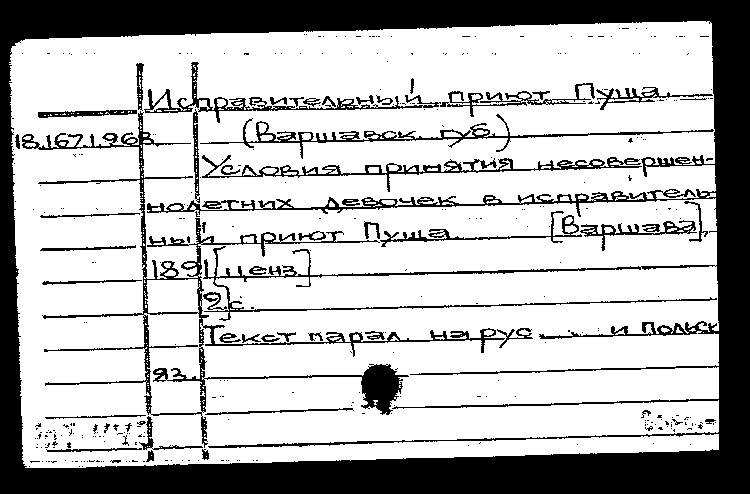 Исправительный приют Пуща.
18.167.1.963. (Варшавск. губ.)
Условия принятия несовершен-
нолетних девочек в исправитель-
ный приют Пуща [Варшава],
1891 [ценз.]
[2] с.
Текст парал. на рус. и польск
яз.